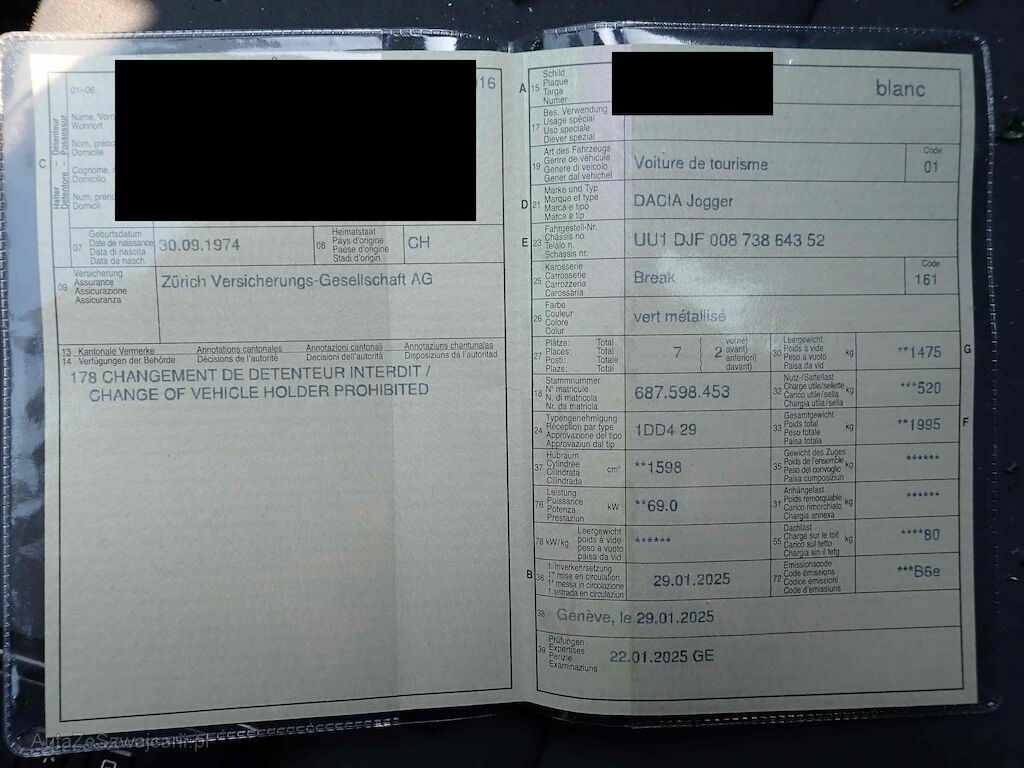 01–06
016
Halter – Détenteur
Detentore – Possessur
Name, Vorn
Wohnort
Nom, préno
Domicile
Cognome, n
Domicilio
Num, prenu
Domicil
C
07
Geburtsdatum
Date de naissance
Data di nascita
Data da nasch.
30.09.1974
08
Heimatstaat
Pays d'origine
Paese d'origine
Stadi d'origin
CH
09
Versicherung
Assurance
Assicurazione
Assicuranza
Zürich Versicherungs-Gesellschaft AG
13 Kantonale Vermerke Annotations cantonales Annotazioni cantonali Annotaziuns chantunalas
14 Verfügungen der Behörde Décisions de l'autorité Decisioni dell'autorità Disposiziuns da l'autoritad
178 CHANGEMENT DE DETENTEUR INTERDIT /
CHANGE OF VEHICLE HOLDER PROHIBITED
A 15
Schild
Plaque
Targa
Numer
blanc
17
Bes. Verwendung
Usage spécial
Uso speciale
Diever spezial
19
Art des Fahrzeugs
Genre de véhicule
Genere di veicolo
Gener dal vehichel
Voiture de tourisme
Code
01
D 21
Marke und Typ
Marque et type
Marca e tipo
Marca e tip
DACIA Jogger
E 23
Fahrgestell-Nr.
Châssis no
Telaio n.
Schassis nr.
UU1 DJF 008 738 643 52
25
Karosserie
Carrosserie
Carrozzeria
Carossaria
Break
Code
161
26
Farbe
Couleur
Colore
Colur
vert métallisé
27
Plätze: Total
Places: Total
Posti: Totale
Plazs: Total
7
2
vorne)
avant)
anteriori)
davant)
30
Leergewicht
Poids à vide
Peso a vuoto
Paisa da vid
kg
**1475
G
18
Stammnummer
N° matricule
N. di matricola
Nr. da matricla
687.598.453
32
Nutz-/Sattellast
Charge utile/sellette
Carico utile/sella
Chargia utila/sella
kg
***520
24
Typengenehmigung
Réception par type
Approvazione del tipo
Approvaziun dal tip
1DD4 29
33
Gesamtgewicht
Poids total
Peso totale
Paisa totala
kg
**1995
F
37
Hubraum
Cylindrée
Cilindrata
Cilindrada
cm³
**1598
35
Gewicht des Zuges
Poids de l'ensemble
Peso del convoglio
Paisa cumposiziun
kg
******
76
Leistung
Puissance
Potenza
Prestaziun
kW
**69.0
31
Anhängelast
Poids remorquable
Carico rimorchiato
Chargia annexa
kg
******
78 kW/kg
Leergewicht
poids à vide
peso a vuoto
paisa da vid
******
55
Dachlast
Charge sur le toit
Carico sul tetto
Chargia sin il tetg
kg
****80
B 36
1. Inverkehrsetzung
1re mise en circulation
1a messa in circolazione
1. entrada en circulaziun
29.01.2025
72
Emissionscode
Code émissions
Codice emissioni
Code d'emissiuns
***B6e
38
Genève, le 29.01.2025
39
Prüfungen
Expertises
Perizie
Examinaziuns
22.01.2025 GE
AutaZeSzwajcarii.pl